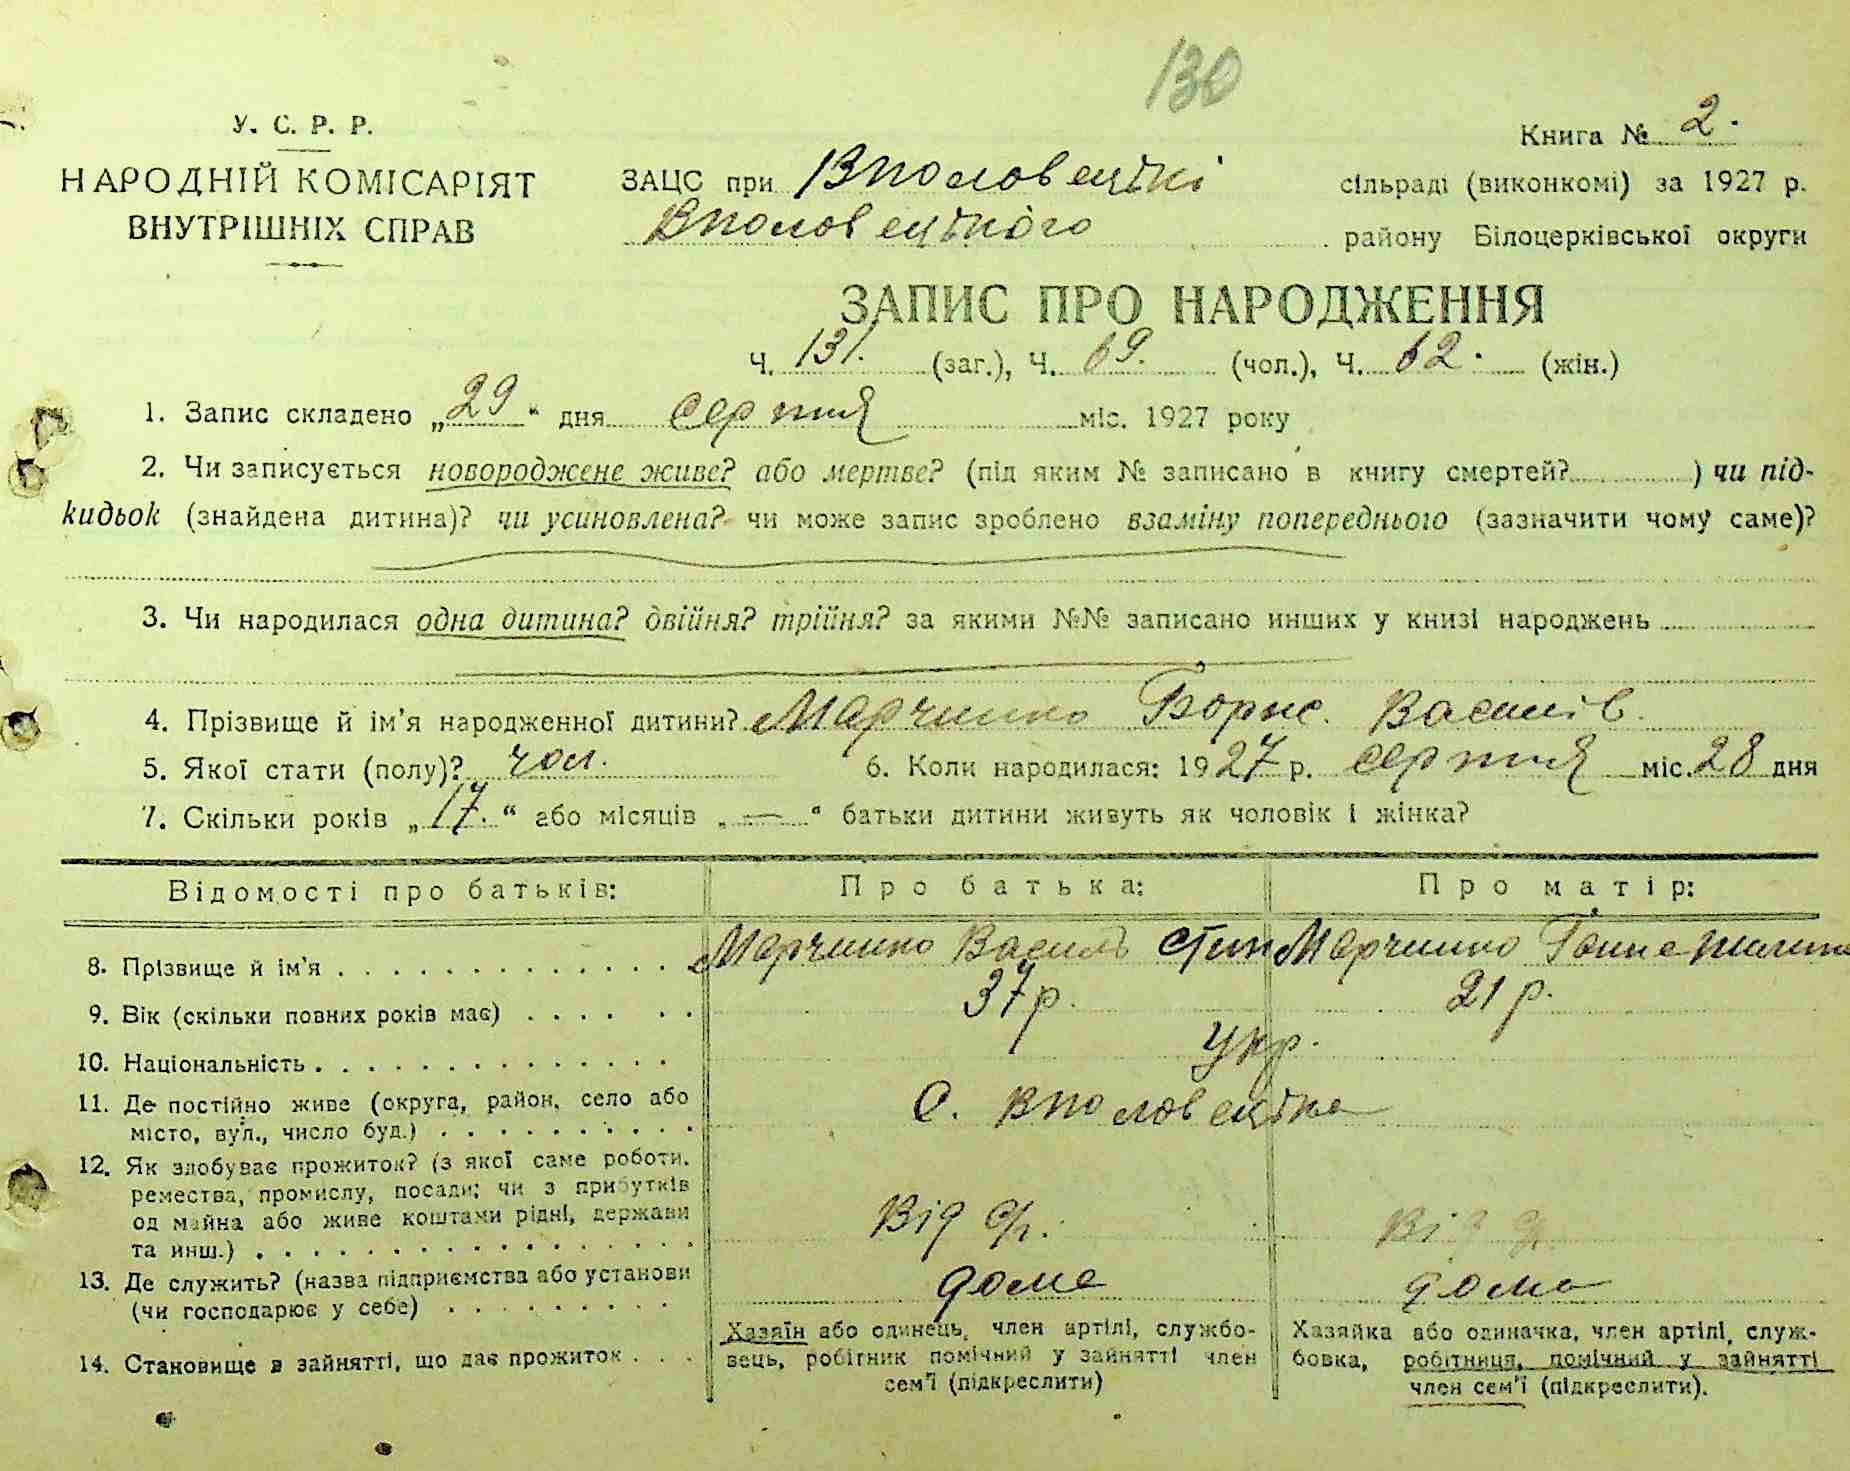 130
У. С. Р. Р.
Книга № 2.
НАРОДНІЙ КОМІСАРІЯТ
ВНУТРІШНІХ СПРАВ
ЗАЦС при Вполовецькі сільраді (виконкомі) за 1927 р.
Вполовецького району Білоцерківської округи
ЗАПИС ПРО НАРОДЖЕННЯ
Ч. 131. (заг.), Ч. 69. (чол.), Ч. 62. (жін.)
1. Запис складено „29“ дня серпня міс. 1927 року
2. Чи записується новороджене живе? або мертве? (під яким № записано в книгу смертей?..........) чи під-
кидьок (знайдена дитина)? чи усиновлена? чи може запис зроблено взаміну попереднього (зазначити чому саме)?
3. Чи народилася одна дитина? двійня? трійня? за якими №№ записано инших у книзі народжень
4. Прізвище й ім'я народженної дитини? Марченко Борис. Василів.
5. Якої стати (полу)? чол. 6. Коли народилася: 1927 р. серпня міс. 28 дня
7. Скільки років „17.“ або місяців „—“ батьки дитини живуть як чоловік і жінка?
Відомості про батьків: Про батька: Про матір:
8. Прізвище й ім'я . . . Марченко Василь Марченко Ганна
9. Вік (скільки повних років має) . . . 37 р. 21 р.
10. Національність . . . Укр.
11. Де постійно живе (округа, район, село або
місто, вул., число буд.) . . . С. Вполовецьке
12. Як здобуває прожиток? (з якої саме роботи,
ремества, промислу, посади; чи з прибутків
од майна або живе коштами рідні, держави
та инш.) . . . Від с/г. Від с/г.
13. Де служить? (назва підприємства або установи
(чи господарює у себе) . . . дома дома
14. Становище в зайнятті, що дає прожиток . . .
Хазяїн або одинець, член артілі, службо-
вець, робітник помічний у зайнятті член
сем'ї (підкреслити)
Хазяйка або одиначка, член артілі, служ-
бовка, робітниця, помічний у зайнятті
член сем'ї (підкреслити).